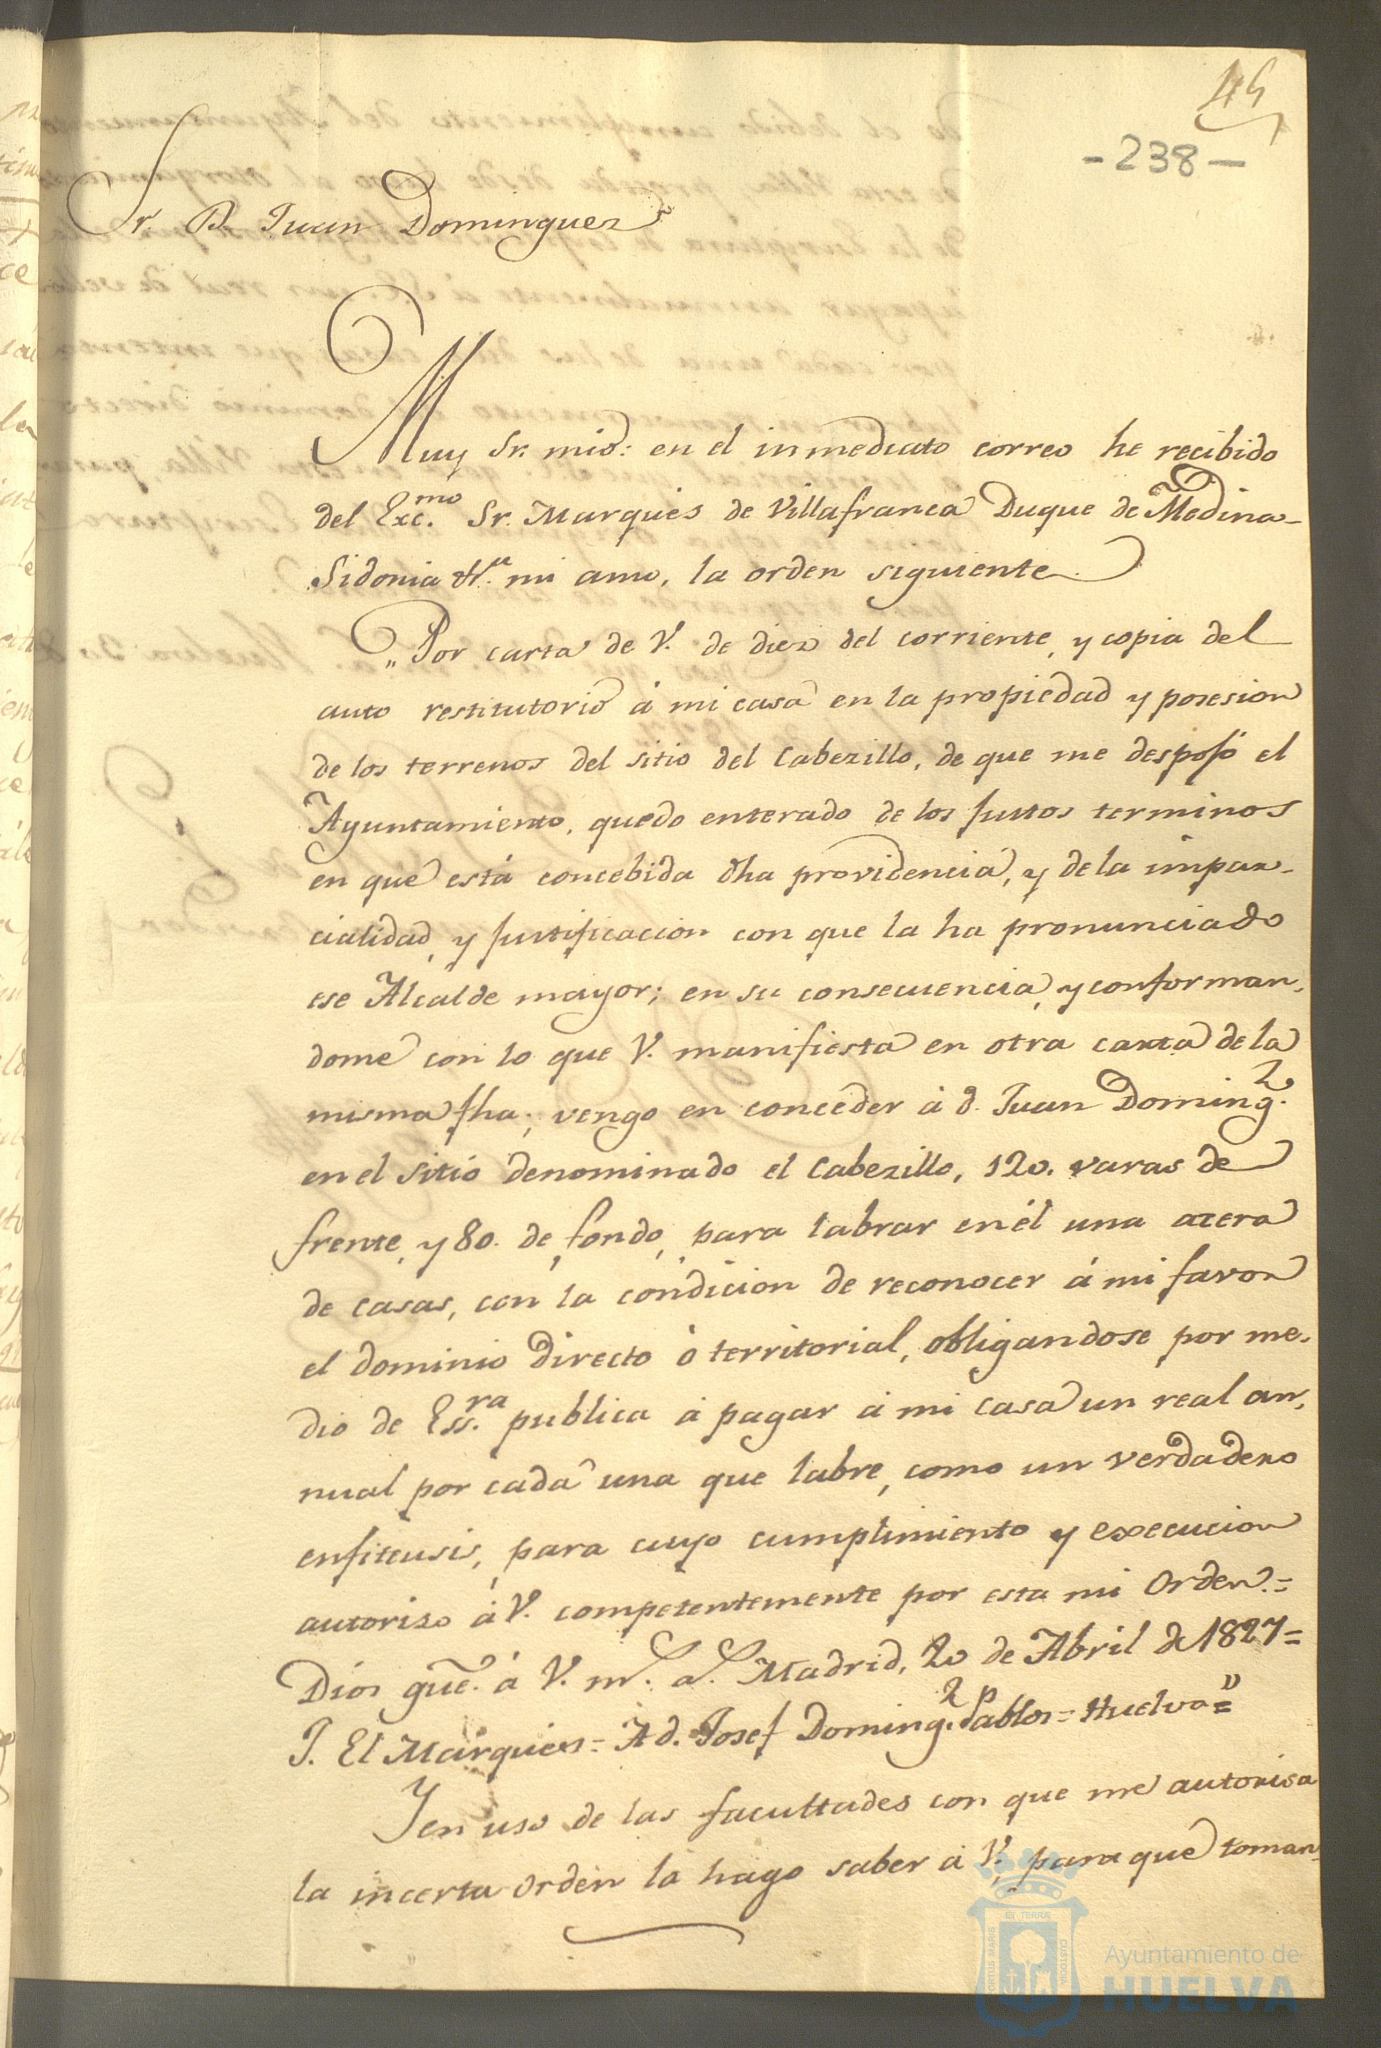 45
-238-
Sr. D. Juan Dominguez
Muy Sr. mio: en el inmediato correo he recibido
del Exc.mo Sr. Marques de Villafranca Duque de Medina-
Sidonia &.a mi amo, la orden siguiente.
„Por carta de V. de diez del corriente, y copia del
auto restitutorio á mi casa en la propiedad y posesion
de los terrenos del sitio del Cabezillo, de que me despojó el
Ayuntamiento, quedo enterado de los justos terminos
en que está concebida dha providencia, y de la impar-
cialidad, y justificacion con que la ha pronunciado
ese Alcalde mayor; en su consecuencia, y conforman-
dome con lo que V. manifiesta en otra carta de la
misma fha; vengo en conceder á d. Juan Doming.z
en el sitio denominado el Cabezillo, 120. varas de
frente, y 80. de fondo, para labrar en él una acera
de casas, con la condicion de reconocer á mi favor
el dominio directo ó territorial, obligandose por me-
dio de Ess.ra publica á pagar á mi casa un real an-
nual por cada una que labre, como un verdadero
enfiteusis, para cuyo cumplimiento y execucion
autorizo á V. competentemente por esta mi Orden.=
Dios gue. á V. m.s a.s Madrid, 20 de Abril de 1827=
P. El Marques= A d. Josef Doming.z Pablos= Huelva="
Y en uso de las facultades con que me autoriza
la incerta orden la hago saber á V. para que toman-
Ayuntamiento de
HUELVA